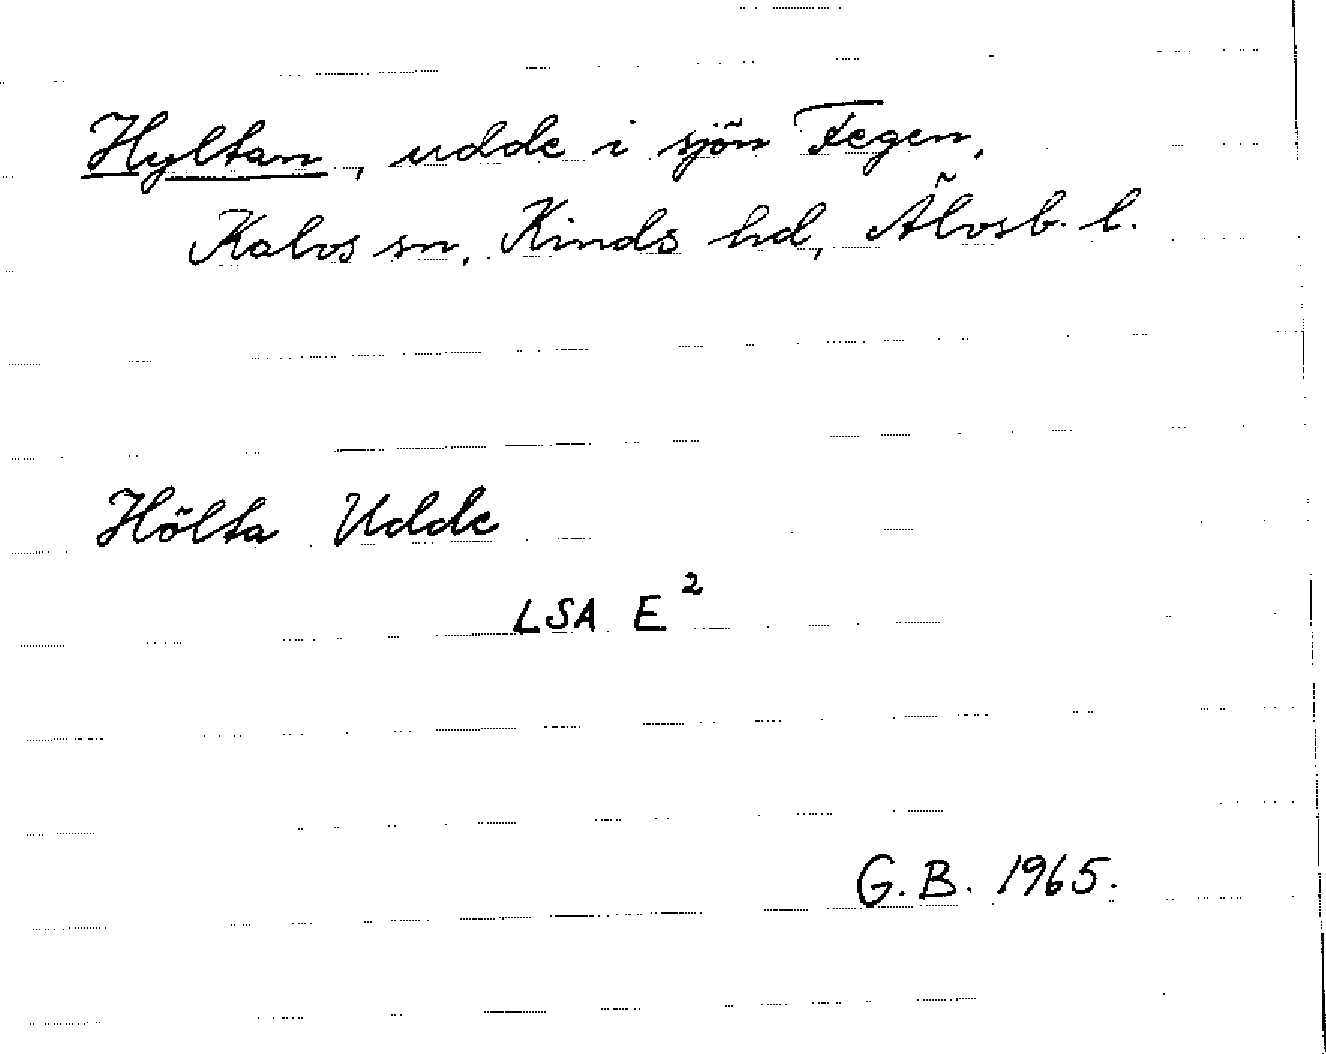 Hyltan, udde i sjön Fegen,
Kalvs sn, Kinds hd, Älvsb. l.
Hölta Udde
LSA E²
G.B. 1965.